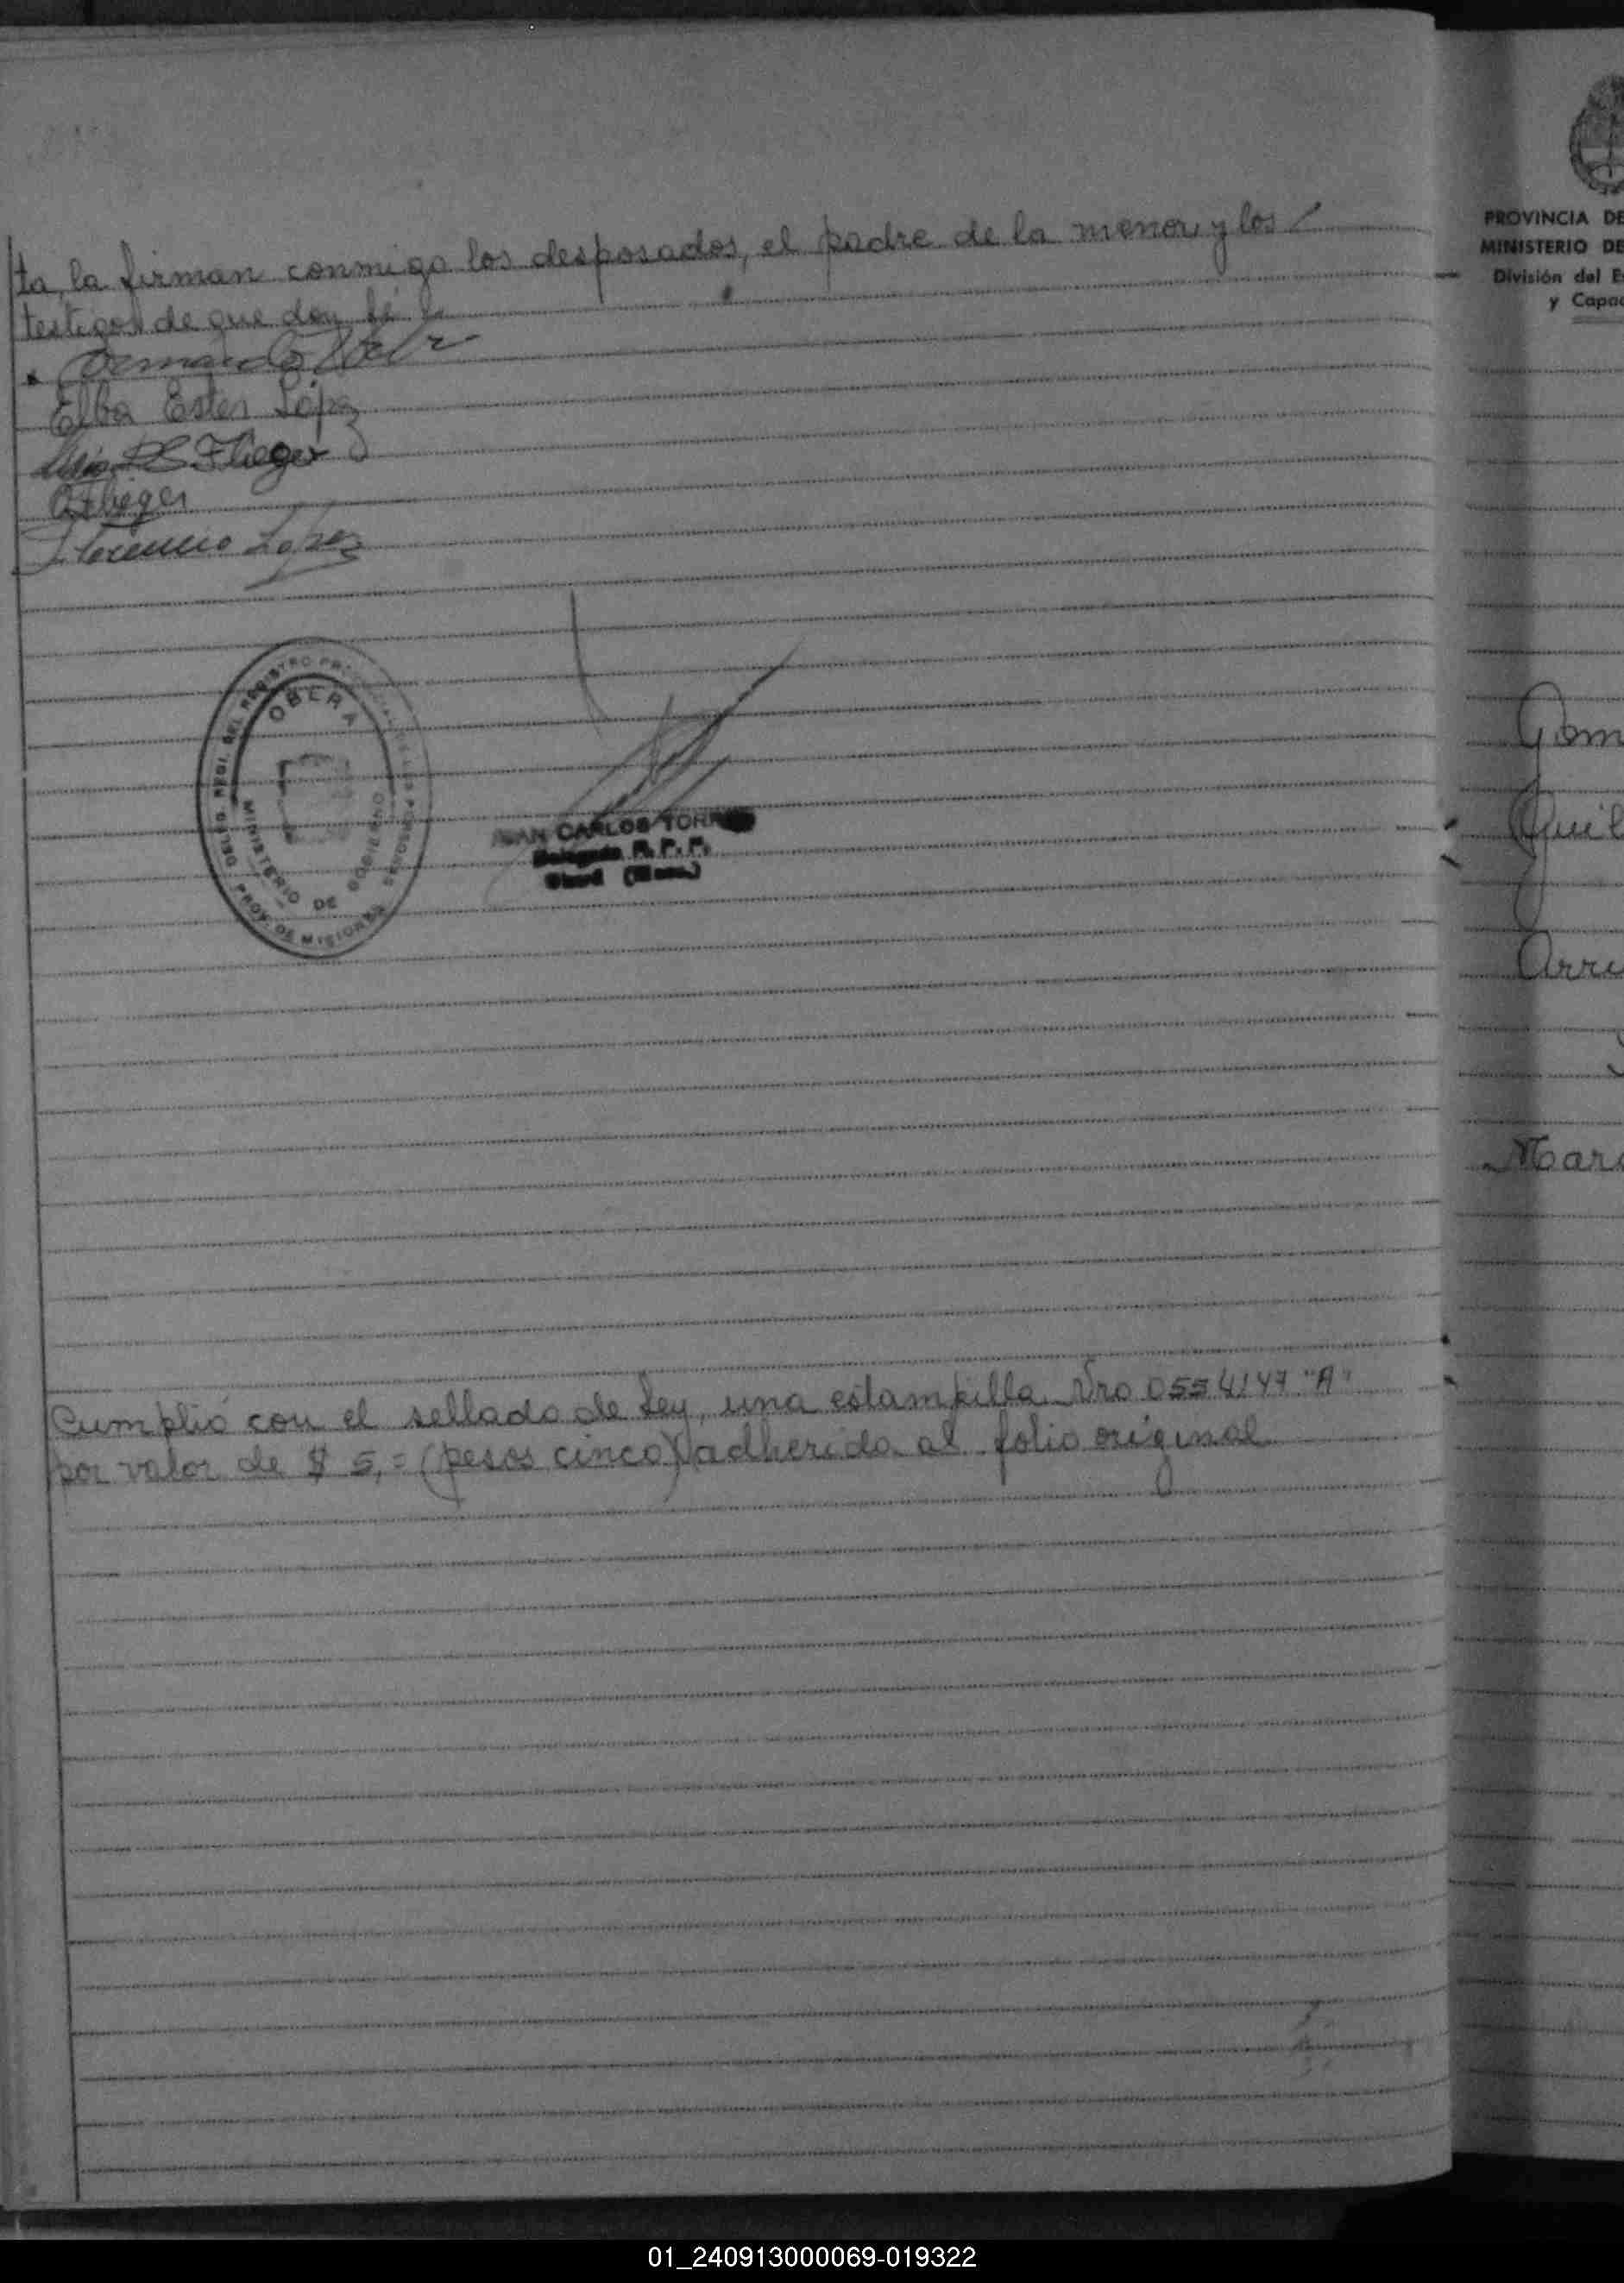 ta, la firman conmigo los desposados, el padre de la menor y los /
testigos de que doy fé
Elba Ester López
Luis Flieger
O Flieger
Florencio Lopez
DELEG. REGI. DEL REGISTRO PROVINCIAL DE LAS PERSONAS
OBERA
MINISTERIO DE GOBIERNO
PROV. DE MISIONES
JUAN CARLOS TORRES
Delegado R. P. P.
Oberá (Mnes.)
Cumplió con el sellado de Ley, una estampilla Nro 0554147 "A"
por valor de $ 5,= (pesos cinco) adherida al folio original
PROVINCIA DE
MINISTERIO DE
División del E
y Capac
Gom
Guil
Arru
Marc
01_240913000069-019322